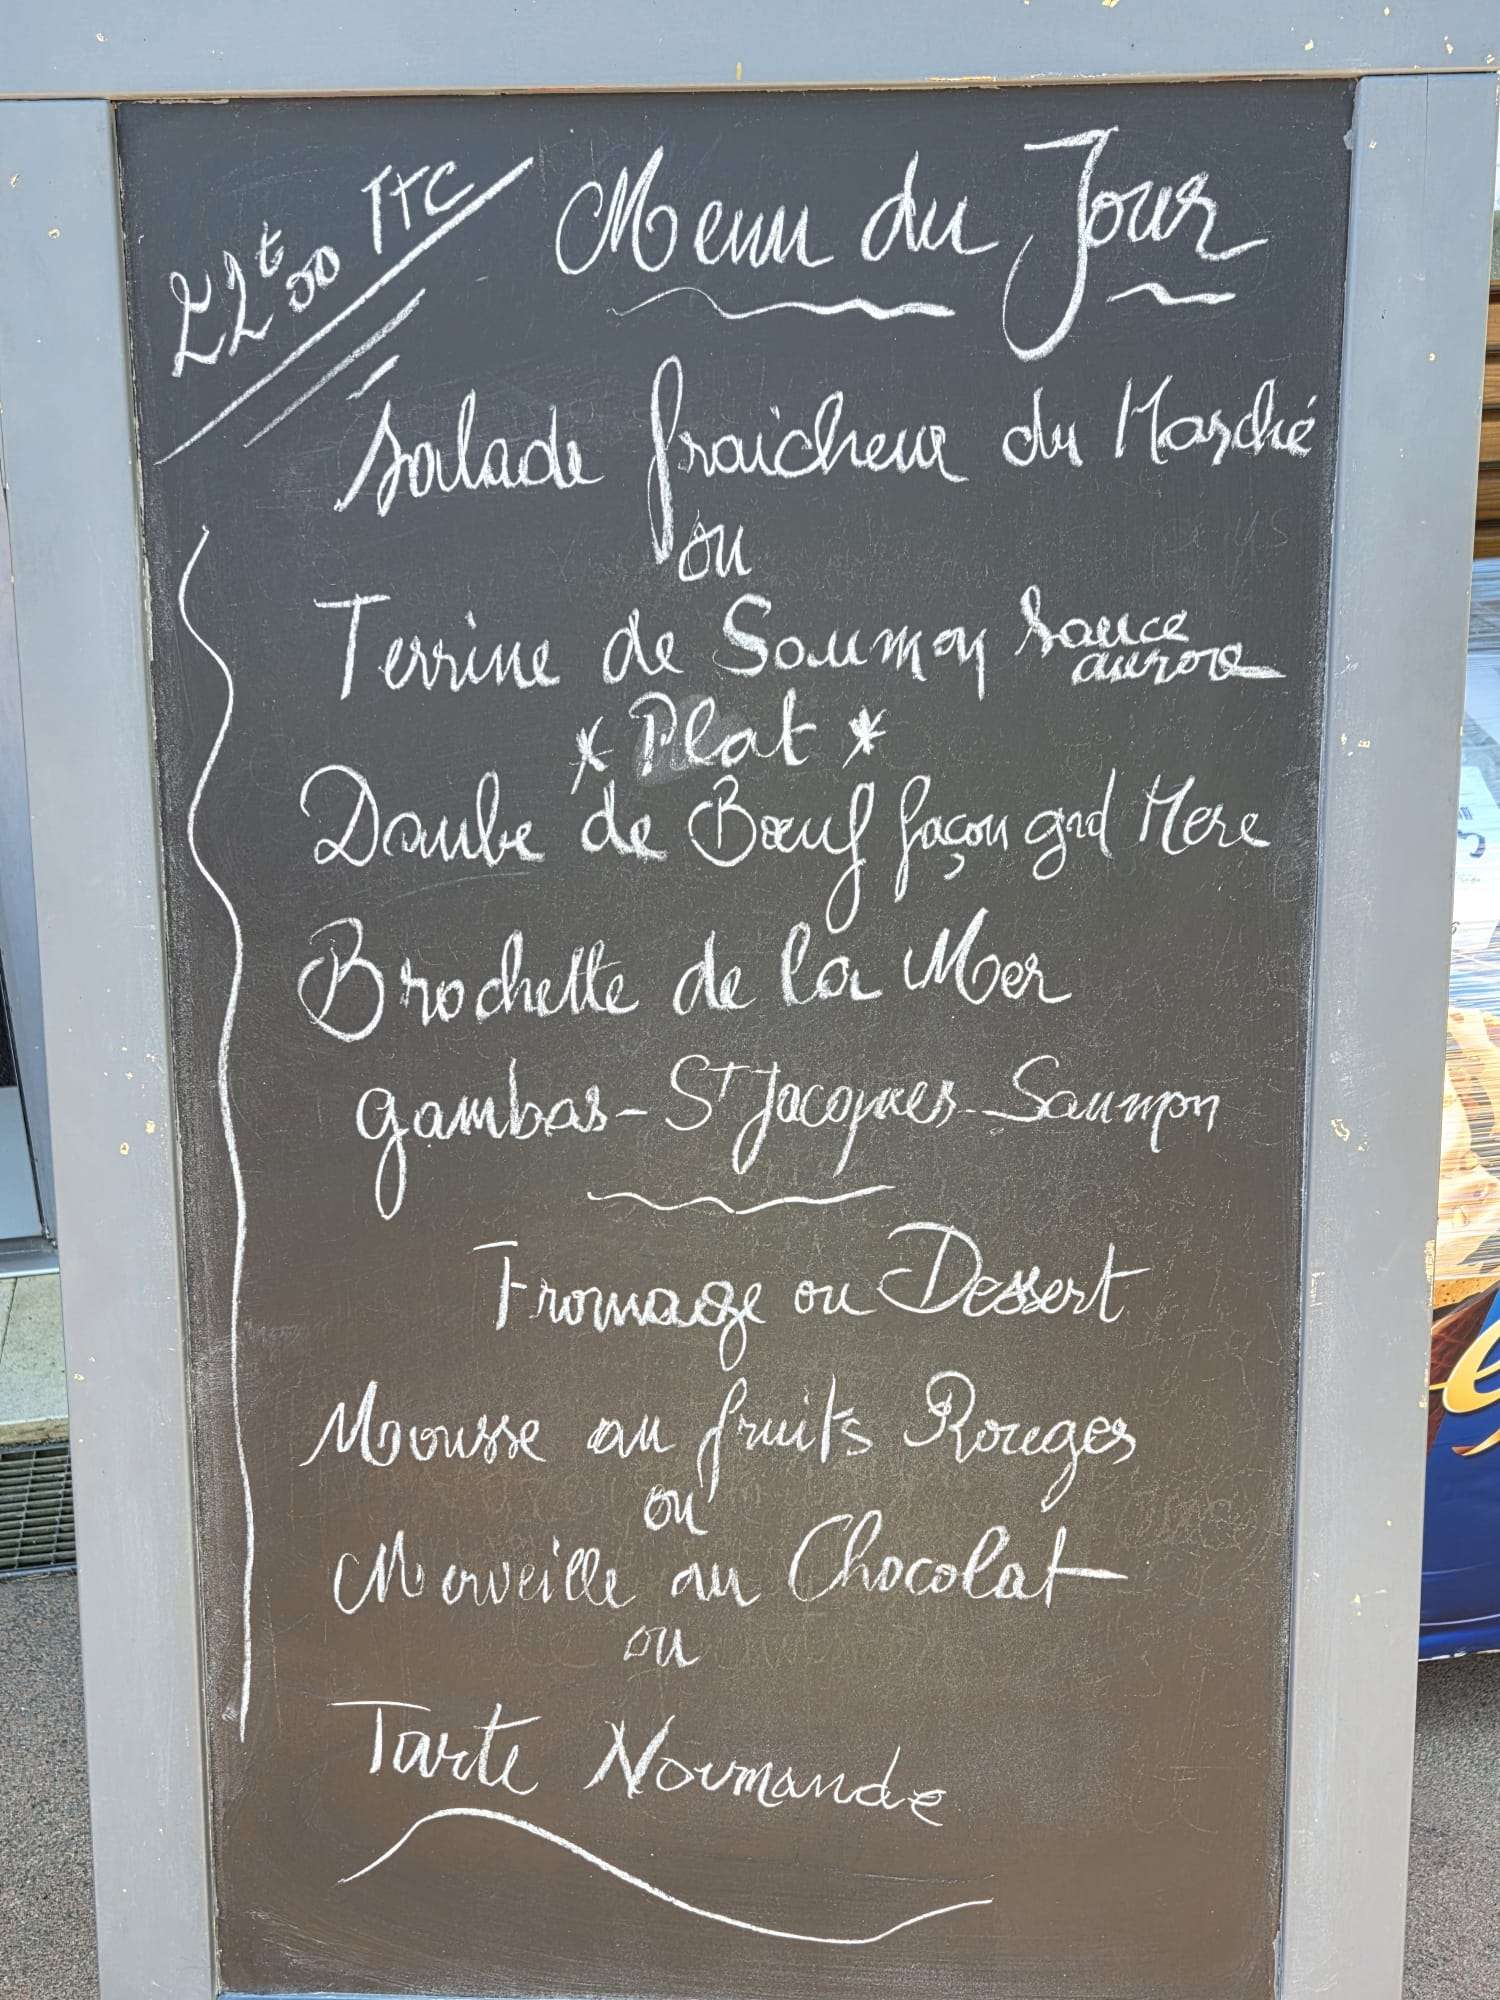 22€50 TTC
Menu du Jour
Salade fraicheur du Marché
ou
Terrine de Saumon Sauce aurore
* Plat *
Daube de Bœuf façon grd Mere
Brochette de la Mer
gambas - St Jacques - Saumon
Fromage ou Dessert
Mousse au fruits Rouges
ou
Merveille au Chocolat
ou
Tarte Normande